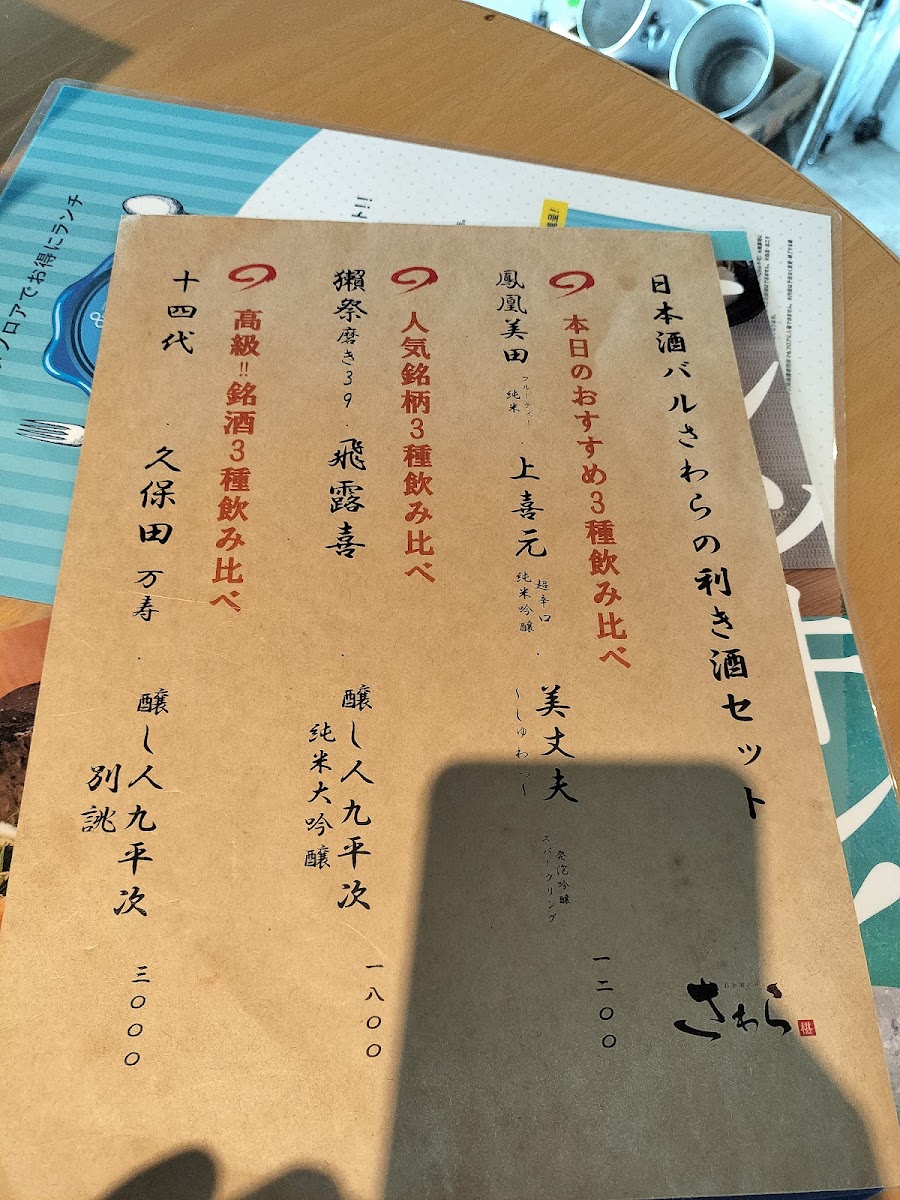 日本酒バルさわらの利き酒セット
本日のおすすめ3種飲み比べ
鳳凰美田 フルーティー 純米 ・ 上喜元 超辛口 純米吟醸 ・ 美丈夫 ～しゅわっ～ 発泡吟醸 スパークリング 一二〇〇
人気銘柄3種飲み比べ
獺祭 磨き39 ・ 飛露喜 ・ 醸し人九平次 純米大吟醸 一八〇〇
高級!!銘酒3種飲み比べ
十四代 ・ 久保田 万寿 ・ 醸し人九平次 別誂 三〇〇〇
さわら
フロアでお得にランチ